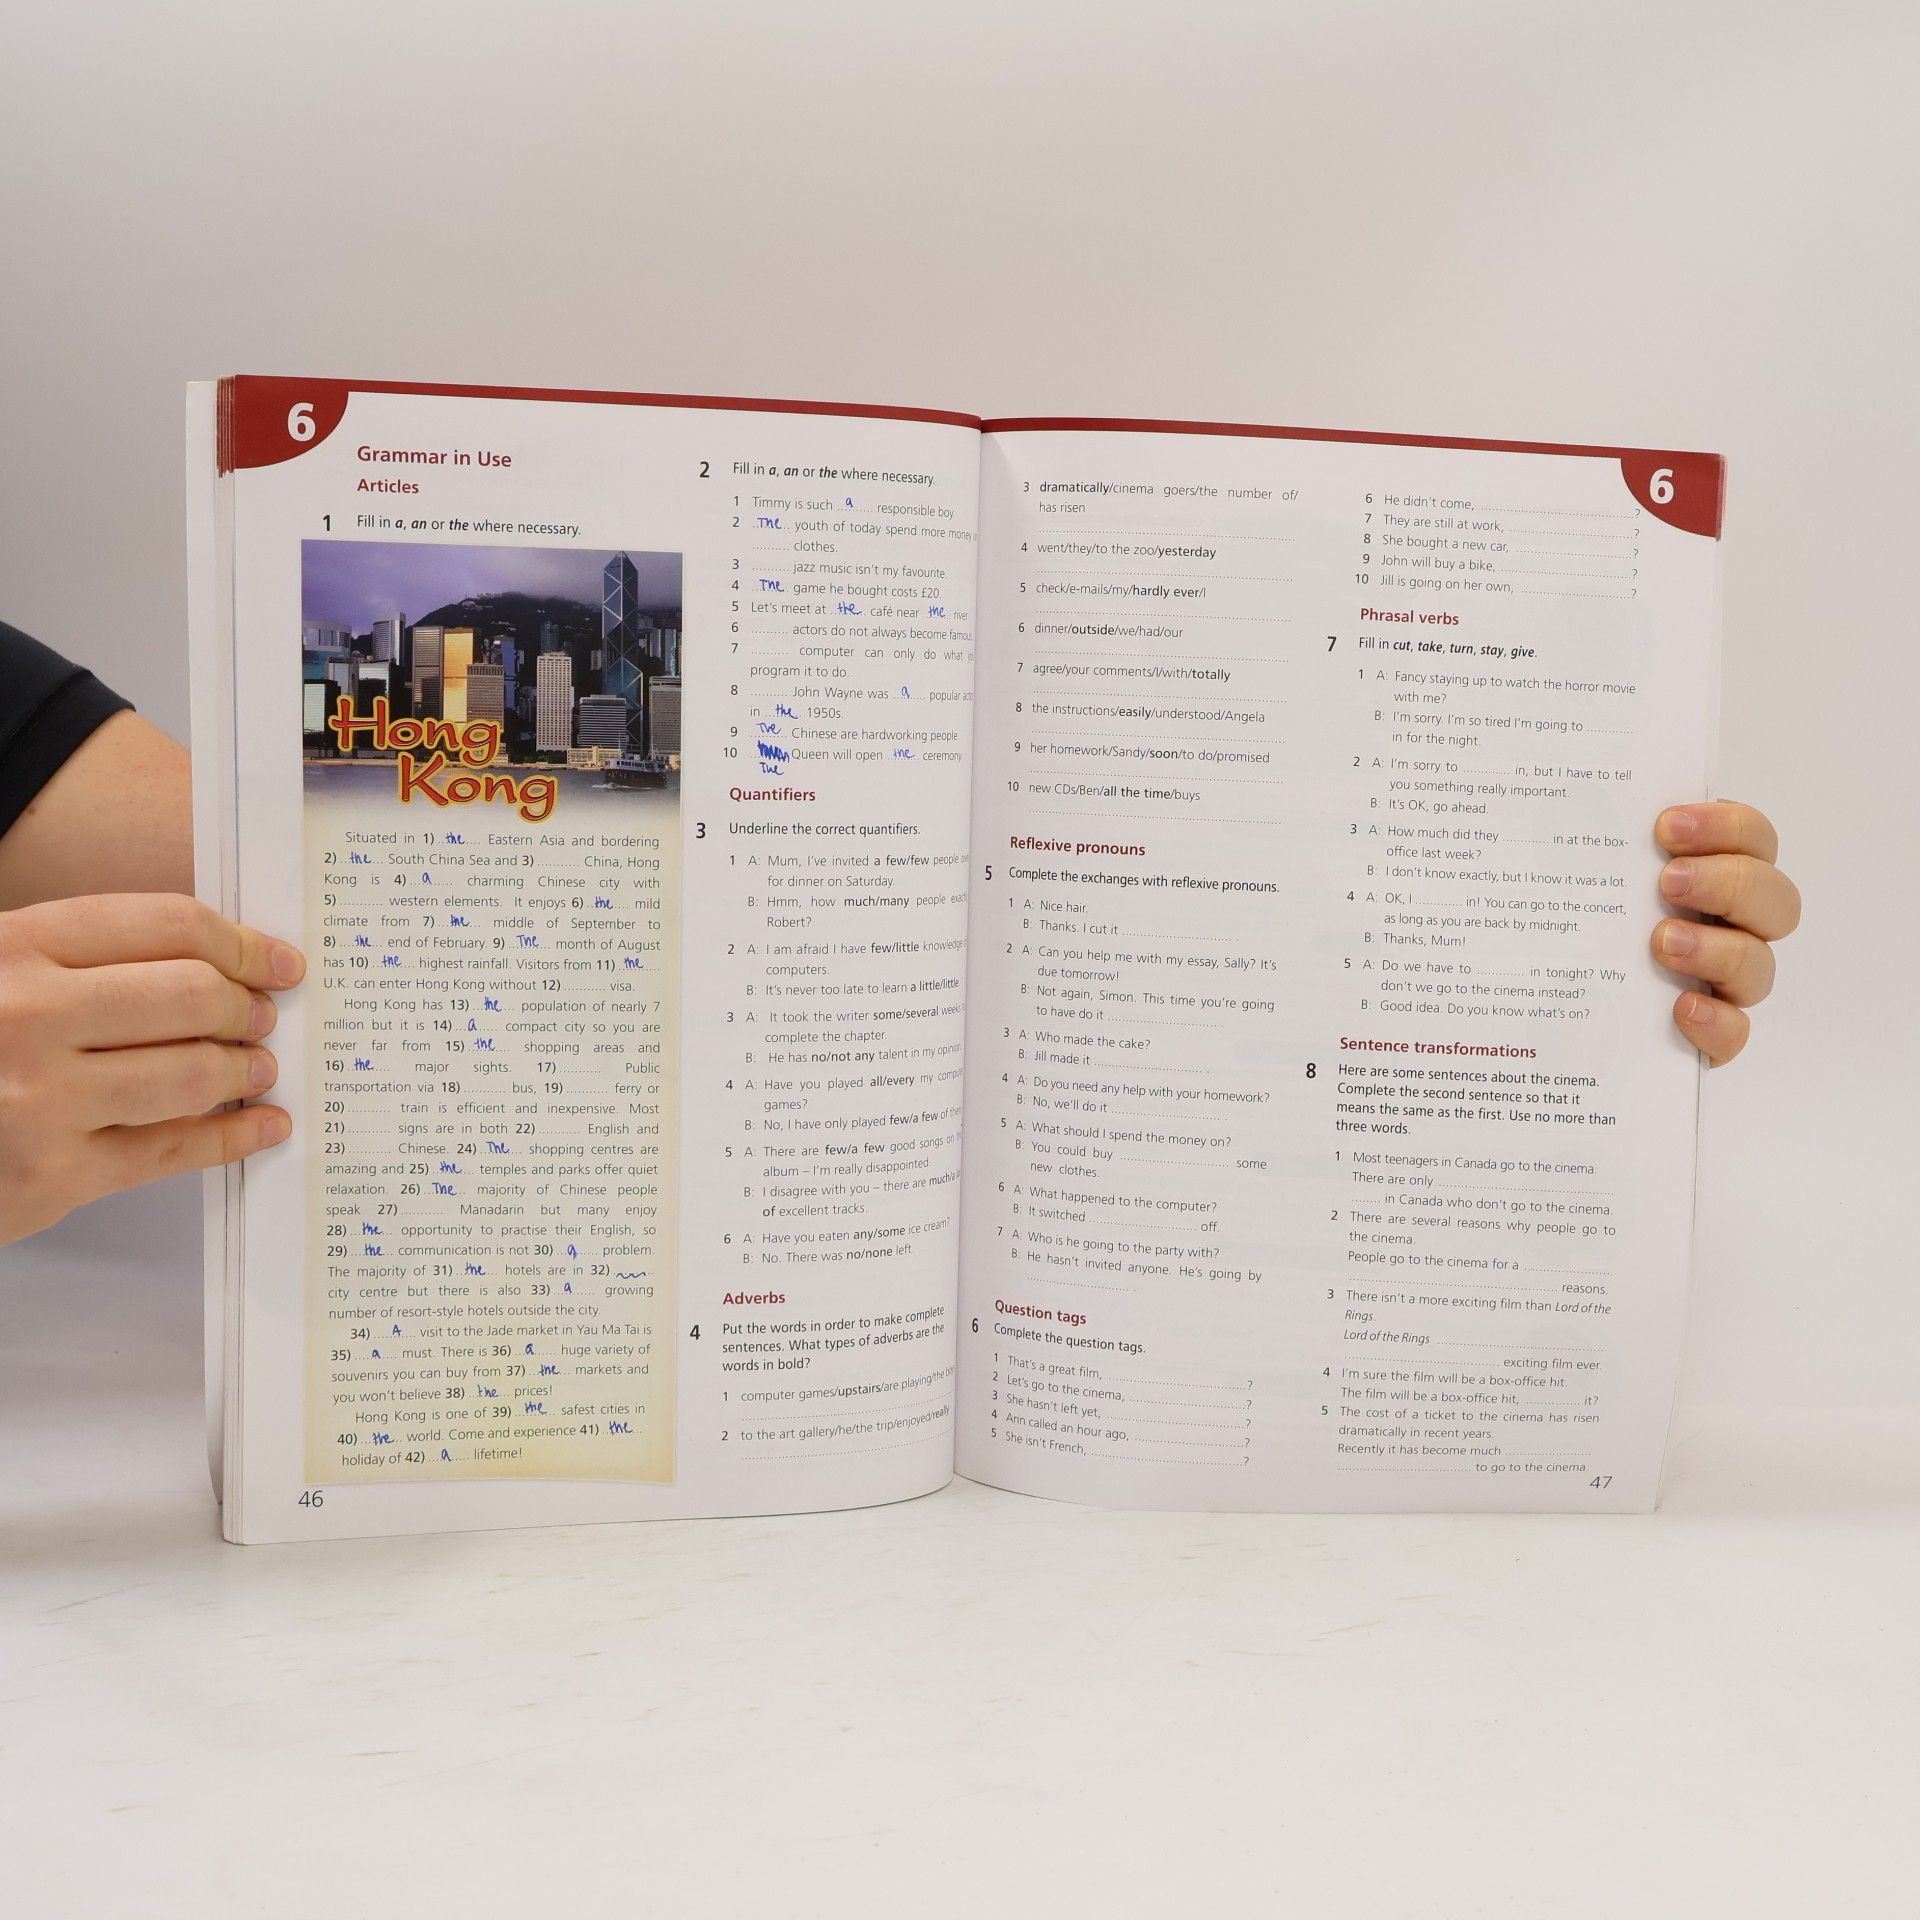 6
Grammar in Use
Articles
1 Fill in a, an or the where necessary.
Hong
Kong
Situated in 1) ..the.... Eastern Asia and bordering
2) ..the... South China Sea and 3) .......... China, Hong
Kong is 4) ..a..... charming Chinese city with
5) .......... western elements. It enjoys 6) ..the... mild
climate from 7) ..the... middle of September to
8) ...the... end of February. 9) ..The... month of August
has 10) ..the.... highest rainfall. Visitors from 11) ..the....
U.K. can enter Hong Kong without 12) .......... visa.
Hong Kong has 13) ..the... population of nearly 7
million but it is 14) ...a..... compact city so you are
never far from 15) ..the.... shopping areas and
16) ..the.... major sights. 17) .......... Public
transportation via 18) .......... bus, 19) .......... ferry or
20) .......... train is efficient and inexpensive. Most
21) .......... signs are in both 22) .......... English and
23) .......... Chinese. 24) ..The... shopping centres are
amazing and 25) ..the... temples and parks offer quiet
relaxation. 26) ..The... majority of Chinese people
speak 27) .......... Manadarin but many enjoy
28) ..the... opportunity to practise their English, so
29) ...the... communication is not 30) ..a..... problem.
The majority of 31) ..the... hotels are in 32) ..........
city centre but there is also 33) ..a...... growing
number of resort-style hotels outside the city.
34) ....A.... visit to the Jade market in Yau Ma Tai is
35) ....a.... must. There is 36) ..a...... huge variety of
souvenirs you can buy from 37) ..the... markets and
you won't believe 38) ..the... prices!
Hong Kong is one of 39) ..the... safest cities in
40) ...the... world. Come and experience 41) ..the...
holiday of 42) ...a..... lifetime!
46
2 Fill in a, an or the where necessary.
1 Timmy is such ..a..... responsible boy.
2 ..The... youth of today spend more money
.......... clothes.
3 .......... jazz music isn't my favourite.
4 ..The.. game he bought costs £20.
5 Let's meet at ..the.. café near ..the.. river
6 .......... actors do not always become famous
7 .......... computer can only do what
program it to do.
8 .......... John Wayne was ..a.... popular
in ...the.. 1950s.
9 ..The... Chinese are hardworking people.
10 ... Queen will open ..the.. ceremony.
The
Quantifiers
3 Underline the correct quantifiers.
1 A: Mum, I've invited a few/few people
for dinner on Saturday.
B: Hmm, how much/many people
Robert?
2 A: I am afraid I have few/little knowledge
computers.
B: It's never too late to learn a little/little.
3 A: It took the writer some/several weeks
complete the chapter.
B: He has no/not any talent in my opinion.
4 A: Have you played all/every my
games?
B: No, I have only played few/a few of them.
5 A: There are few/a few good songs on
album – I'm really disappointed.
B: I disagree with you – there are much/a
of excellent tracks.
6 A: Have you eaten any/some ice cream?
B: No. There was no/none left.
Adverbs
4 Put the words in order to make complete
sentences. What types of adverbs are the
words in bold?
1 computer games/upstairs/are playing/the
2 to the art gallery/he/the trip/enjoyed/really
3 dramatically/cinema goers/the number of/
has risen
4 went/they/to the zoo/yesterday
5 check/e-mails/my/hardly ever/I
6 dinner/outside/we/had/our
7 agree/your comments/I/with/totally
8 the instructions/easily/understood/Angela
9 her homework/Sandy/soon/to do/promised
10 new CDs/Ben/all the time/buys
Reflexive pronouns
5 Complete the exchanges with reflexive pronouns.
1 A: Nice hair.
B: Thanks. I cut it ..............................
2 A: Can you help me with my essay, Sally? It's
due tomorrow!
B: Not again, Simon. This time you're going
to have do it .............................. .
3 A: Who made the cake?
B: Jill made it .............................. .
4 A: Do you need any help with your homework?
B: No, we'll do it .............................. .
5 A: What should I spend the money on?
B: You could buy .............................. some
new clothes.
6 A: What happened to the computer?
B: It switched .............................. off.
7 A: Who is he going to the party with?
B: He hasn't invited anyone. He's going by
.............................. .
Question tags
6 Complete the question tags.
1 That's a great film, ..............................?
2 Let's go to the cinema, ..............................?
3 She hasn't left yet, ..............................?
4 Ann called an hour ago, ..............................?
5 She isn't French, ..............................?
6
6 He didn't come, ..............................?
7 They are still at work, ..............................?
8 She bought a new car, ..............................?
9 John will buy a bike, ..............................?
10 Jill is going on her own, ..............................?
Phrasal verbs
7 Fill in cut, take, turn, stay, give.
1 A: Fancy staying up to watch the horror movie
with me?
B: I'm sorry. I'm so tired I'm going to ............
in for the night.
2 A: I'm sorry to ............ in, but I have to tell
you something really important.
B: It's OK, go ahead.
3 A: How much did they ............ in at the box-
office last week?
B: I don't know exactly, but I know it was a lot.
4 A: OK, I ............ in! You can go to the concert,
as long as you are back by midnight.
B: Thanks, Mum!
5 A: Do we have to ............ in tonight? Why
don't we go to the cinema instead?
B: Good idea. Do you know what's on?
Sentence transformations
8 Here are some sentences about the cinema.
Complete the second sentence so that it
means the same as the first. Use no more than
three words.
1 Most teenagers in Canada go to the cinema.
There are only ..............................
........ in Canada who don't go to the cinema.
2 There are several reasons why people go to
the cinema.
People go to the cinema for a ....................
.............................. reasons.
3 There isn't a more exciting film than Lord of the
Rings.
Lord of the Rings ..............................
.............................. exciting film ever.
4 I'm sure the film will be a box-office hit.
The film will be a box-office hit, .............. it?
5 The cost of a ticket to the cinema has risen
dramatically in recent years.
Recently it has become much ....................
.............................. to go to the cinema.
47